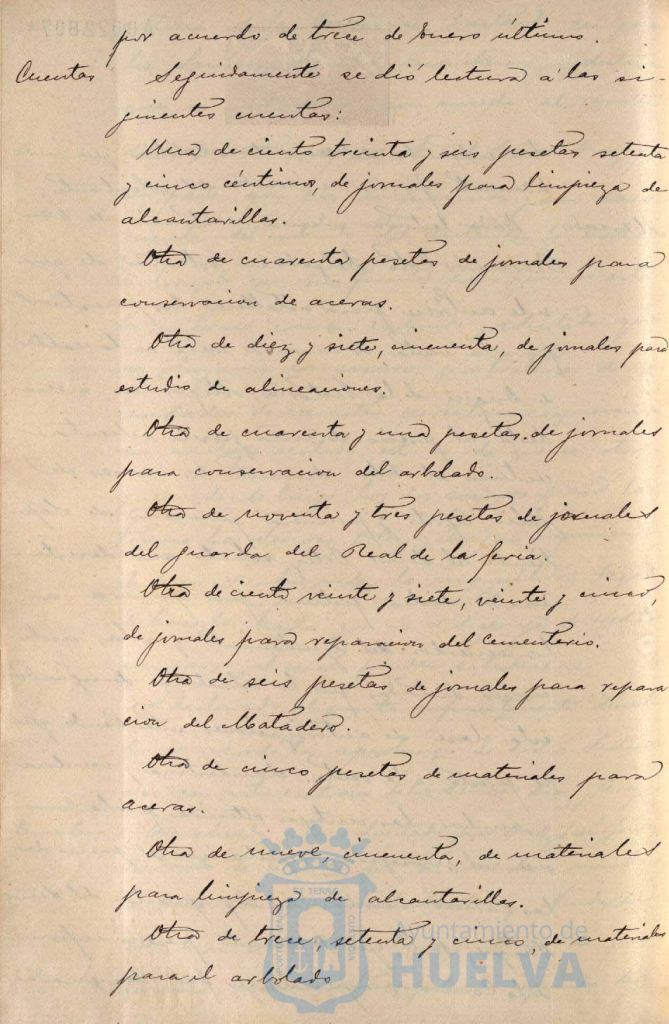 por acuerdo de trece de Enero último.
Cuentas Seguidamente se dió lectura á las si-
guientes cuentas:
Una de ciento treinta y seis pesetas setenta
y cinco céntimos, de jornales para limpieza de
alcantarillas.
Otra de cuarenta pesetas de jornales para
conservacion de aceras.
Otra de diez y siete, cincuenta, de jornales para
estudio de alineaciones.
Otra de cuarenta y una pesetas de jornales
para conservacion del arbolado.
Otra de noventa y tres pesetas de jornales
del guarda del Real de la feria.
Otra de ciento veinte y siete, veinte y cinco,
de jornales para reparacion del Cementerio.
Otra de seis pesetas de jornales para repara
cion del Matadero.
Otra de cinco pesetas de materiales para
aceras.
Otra de nueve, cincuenta, de materiales
para limpieza de alcantarillas.
Otra de trece, setenta y cinco, de materiales
para el arbolado
Ayuntamiento de
HUELVA